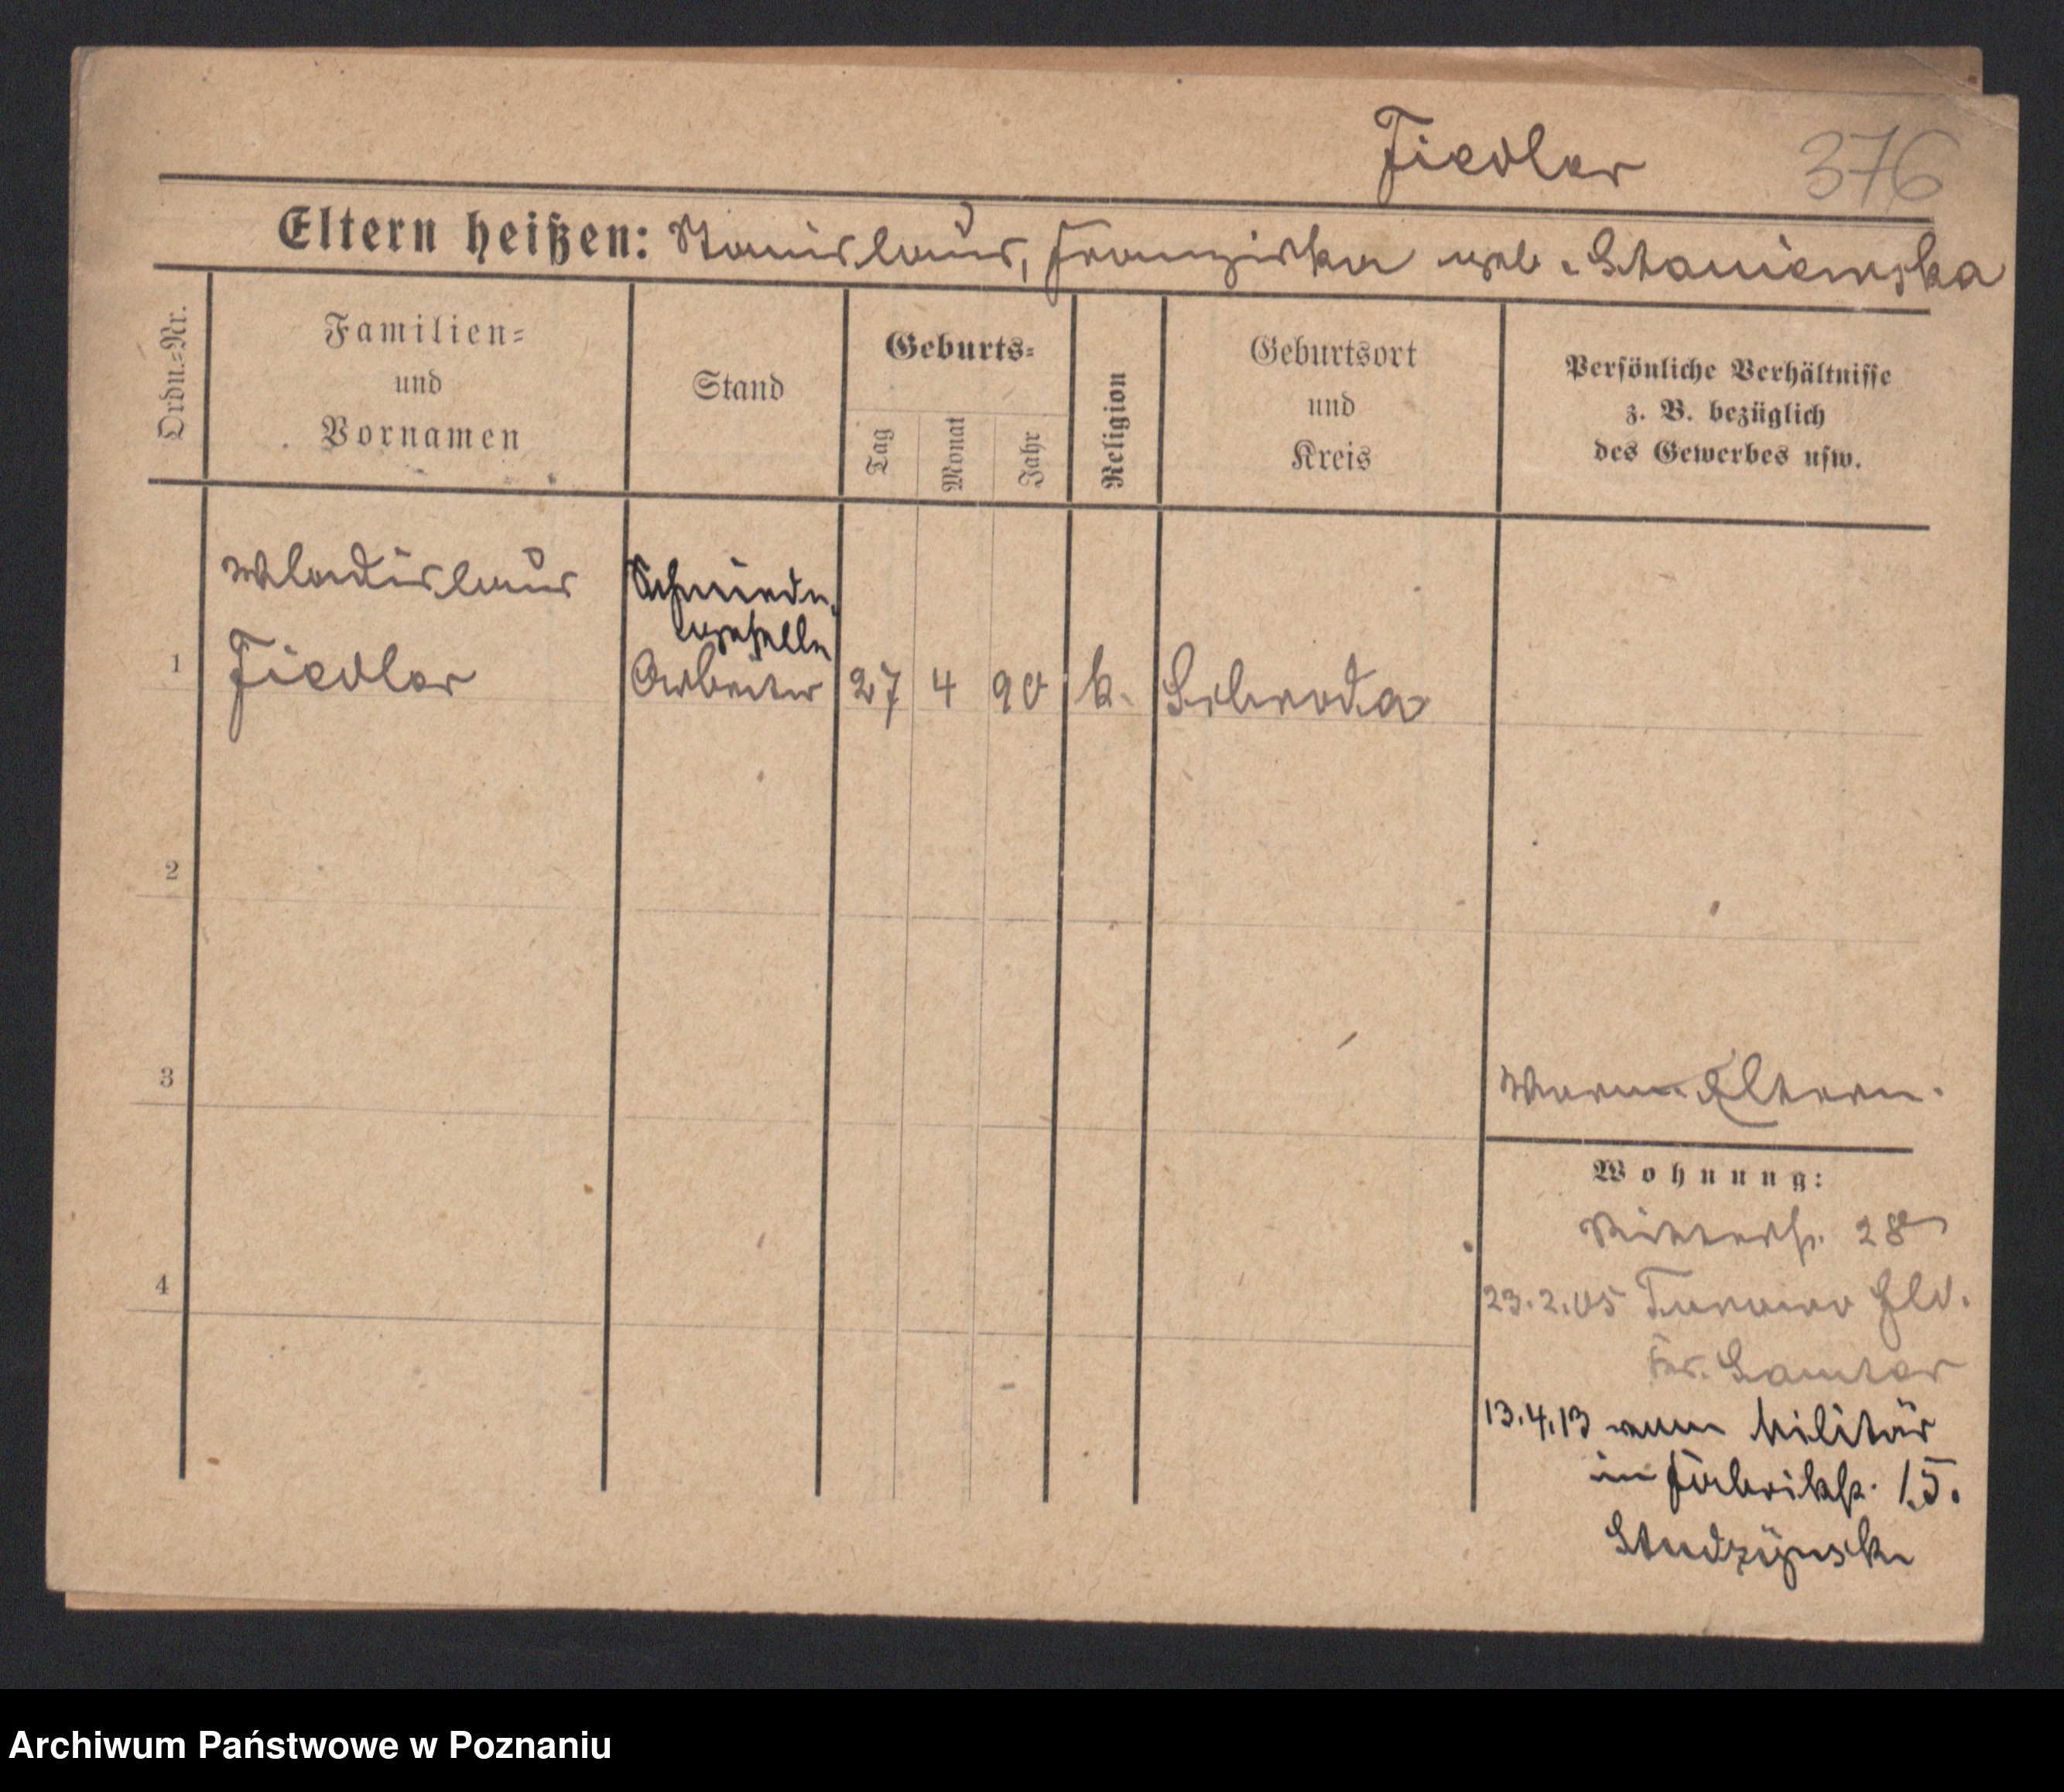 Fiedler 376
Eltern heißen: Stanislaus, Franziska geb. Staniewska
Ordn.=Nr.
Familien=
und
Vornamen
Stand
Geburts=
Tag
Monat
Jahr
Religion
Geburtsort
und
Kreis
Persönliche Verhältnisse
z. B. bezüglich
des Gewerbes usw.
Wladislaus
Schmiede
geselle
1 Fiedler Arbeiter 27 4 90 k. Schroda
2
3
Eltern.
4
Wohnung:
Ritterstr. 28
23.2.05 Turowo Gld.
Kr. Samter
13.4.13 vom Militär
in Fabrikstr. 15.
Archiwum Państwowe w Poznaniu